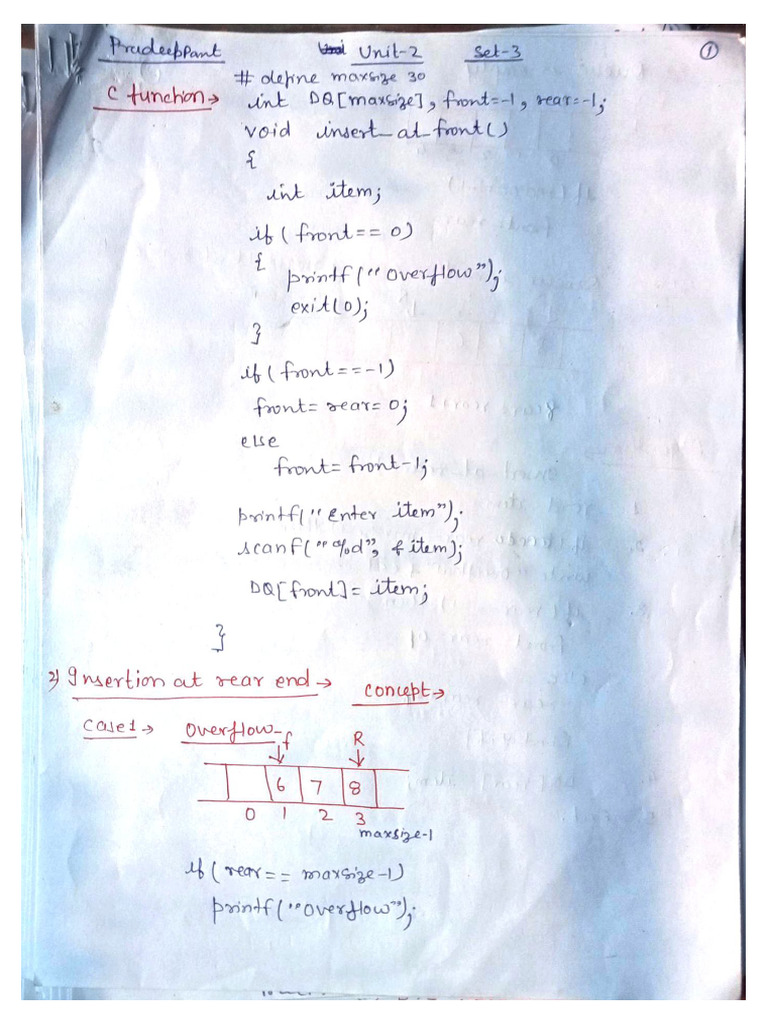 Pradeep Pant Unit-2 Set-3 1
# define maxsize 30
C function→ int DQ[maxsize], front=-1, rear=-1;
void insert_at_front()
{
int item;
if ( front == 0)
{
printf("Overflow");
exit(0);
}
if ( front==-1)
front= rear= 0;
else
front= front-1;
printf("Enter item");
scanf("%d", &item);
DQ[front]= item;
}
2) Insertion at rear end→ concept→
Case1→ Overflow-
f R
6 7 8
0 1 2 3
maxsize-1
if ( rear== maxsize-1)
printf("Overflow");